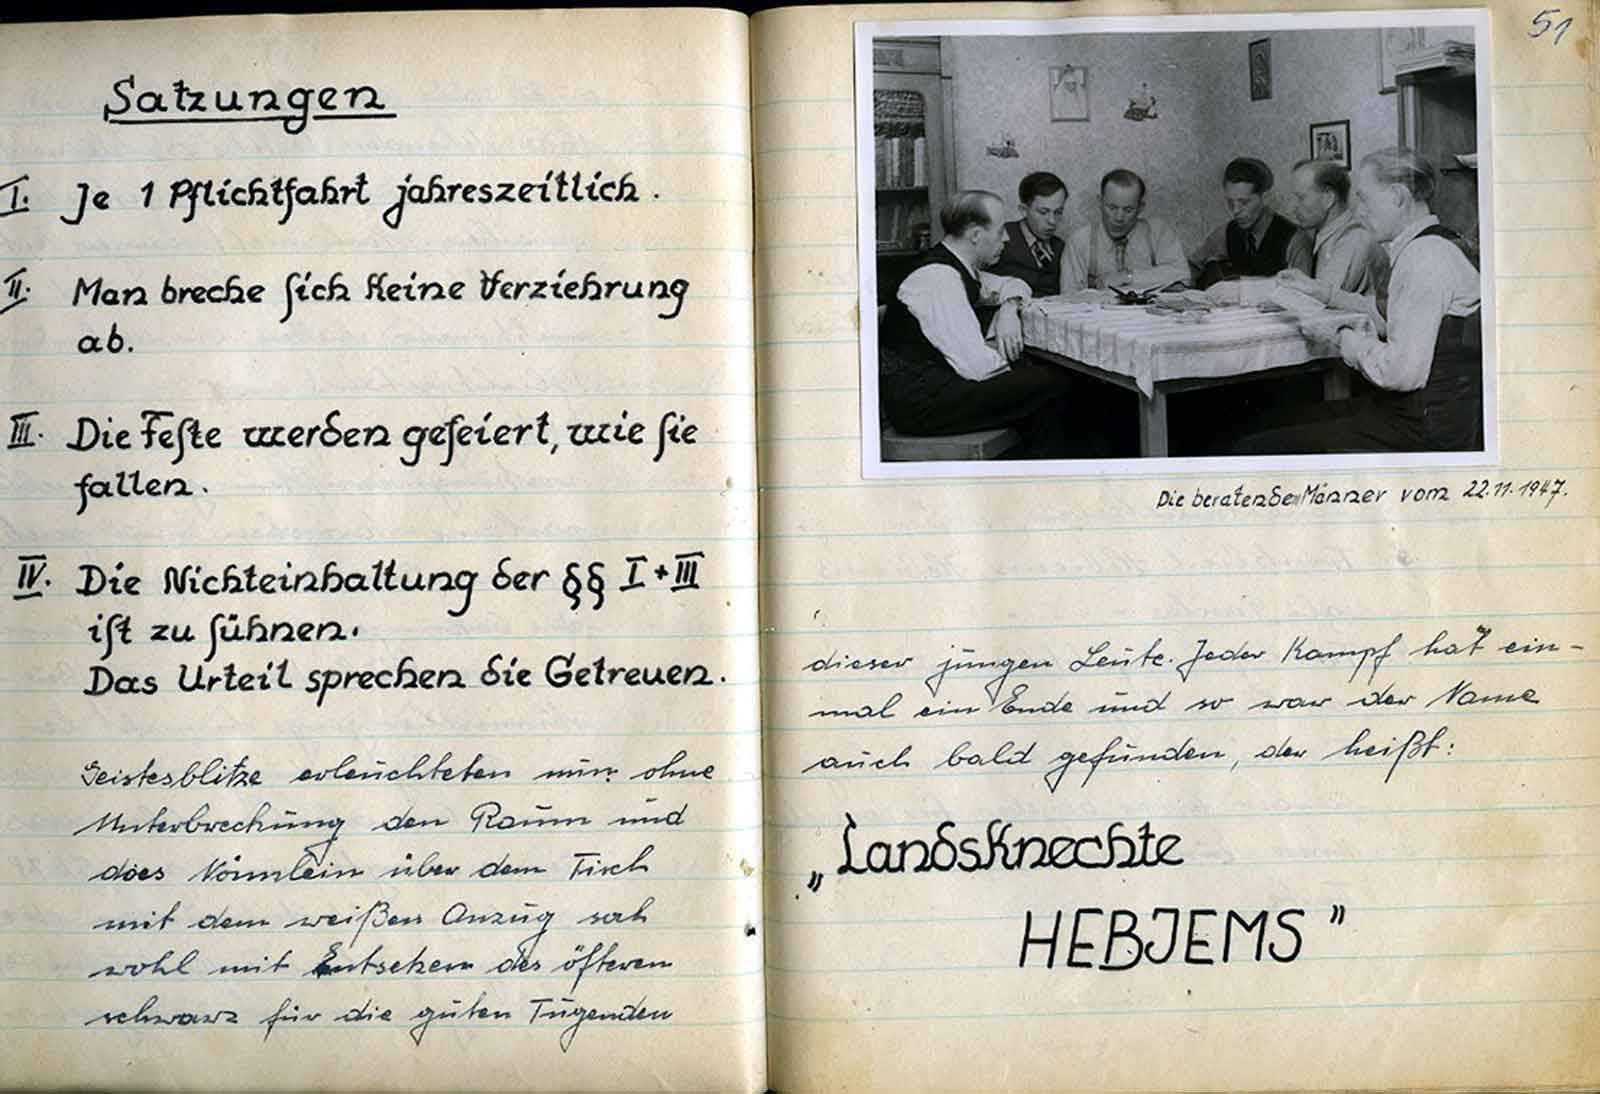 Satzungen
I. Je 1 Pflichtfahrt jahreszeitlich.
II. Man breche sich keine Verziehrung
ab.
III. Die Feste werden gefeiert, wie sie
fallen.
IV. Die Nichteinhaltung der §§ I + III
ist zu sühnen.
Das Urteil sprechen die Getreuen.
Geistesblitze erleuchteten nun ohne
Unterbrechung den Raum und
über dem Tisch
mit dem weißen Anzug sah
wohl mit Entsetzen des öfteren
schwarz für die guten Tugenden
51
Die beratenden Männer vom 22.11.1947.
dieser jungen Leute. Jeder Kampf hat ein-
mal ein Ende und so war der Name
auch bald gefunden, der heißt:
„Landsknechte
HEBJEMS"